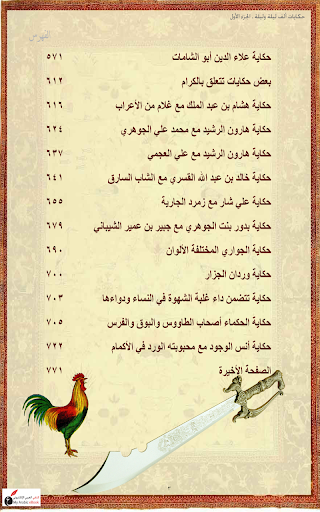 حكايات ألف ليلة وليلة : الجزء الأول
الفهرس
حكاية علاء الدين أبو الشامات ٥٧١
بعض حكايات تتعلق بالكرام ٦١٢
حكاية هشام بن عبد الملك مع غلام من الأعراب ٦١٦
حكاية هارون الرشيد مع محمد علي الجوهري ٦٢٤
حكاية هارون الرشيد مع علي العجمي ٦٣٧
حكاية خالد بن عبد الله القسري مع الشاب السارق ٦٤١
حكاية علي شار مع زمرد الجارية ٦٥٥
حكاية بدور بنت الجوهري مع جبير بن عمير الشيباني ٦٧٩
حكاية الجواري المختلفة الألوان ٦٩٠
حكاية وردان الجزار ٧٠٠
حكاية تتضمن داء غلبة الشهوة في النساء ودواءها ٧٠٣
حكاية الحكماء أصحاب الطاووس والبوق والفرس ٧٠٥
حكاية أنس الوجود مع محبوبته الورد في الأكمام ٧٢٢
الصفحة الأخيرة ٧٧١